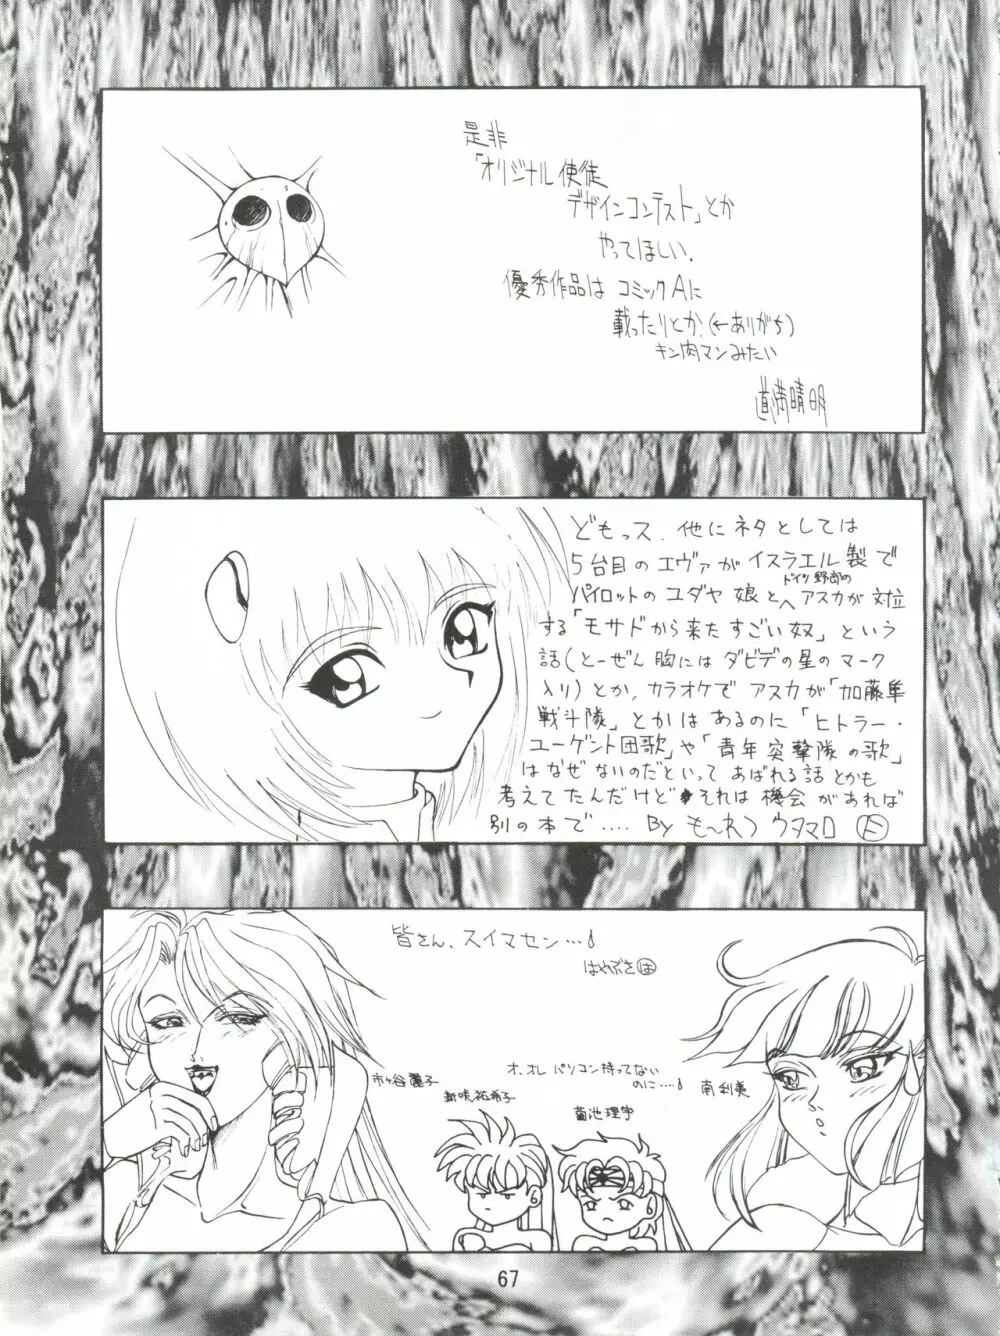 是非
「オリジナル使徒
デザインコンテスト」とか
やってほしい.
優秀作品は コミックAに
載ったりとか.(←ありがち)
キン肉マンみたい
道満晴明
どもっス. 他にネタとしては
5台目のエヴァがイスラエル製で
ドイツ野郎の
パイロットのユダヤ娘と アスカが対立
する「モサドから来たすごい奴」という
話(とーぜん胸にはダビデの星のマーク
入り)とか, カラオケでアスカが「加藤隼
戦斗隊」とかはあるのに「ヒトラー・
ユーゲント団歌」や「青年突撃隊の歌」
はなぜないのだといってあばれる話とかも
考えてたんだけど それは機会があれば
別の本で.... By も〜れつウタマロ
皆さん、スイマセン…
はやぶさは
市ヶ谷麗子
新咲祐希子
オ、オレ パソコン持ってない
のに…
菊池理宇
南利美
67